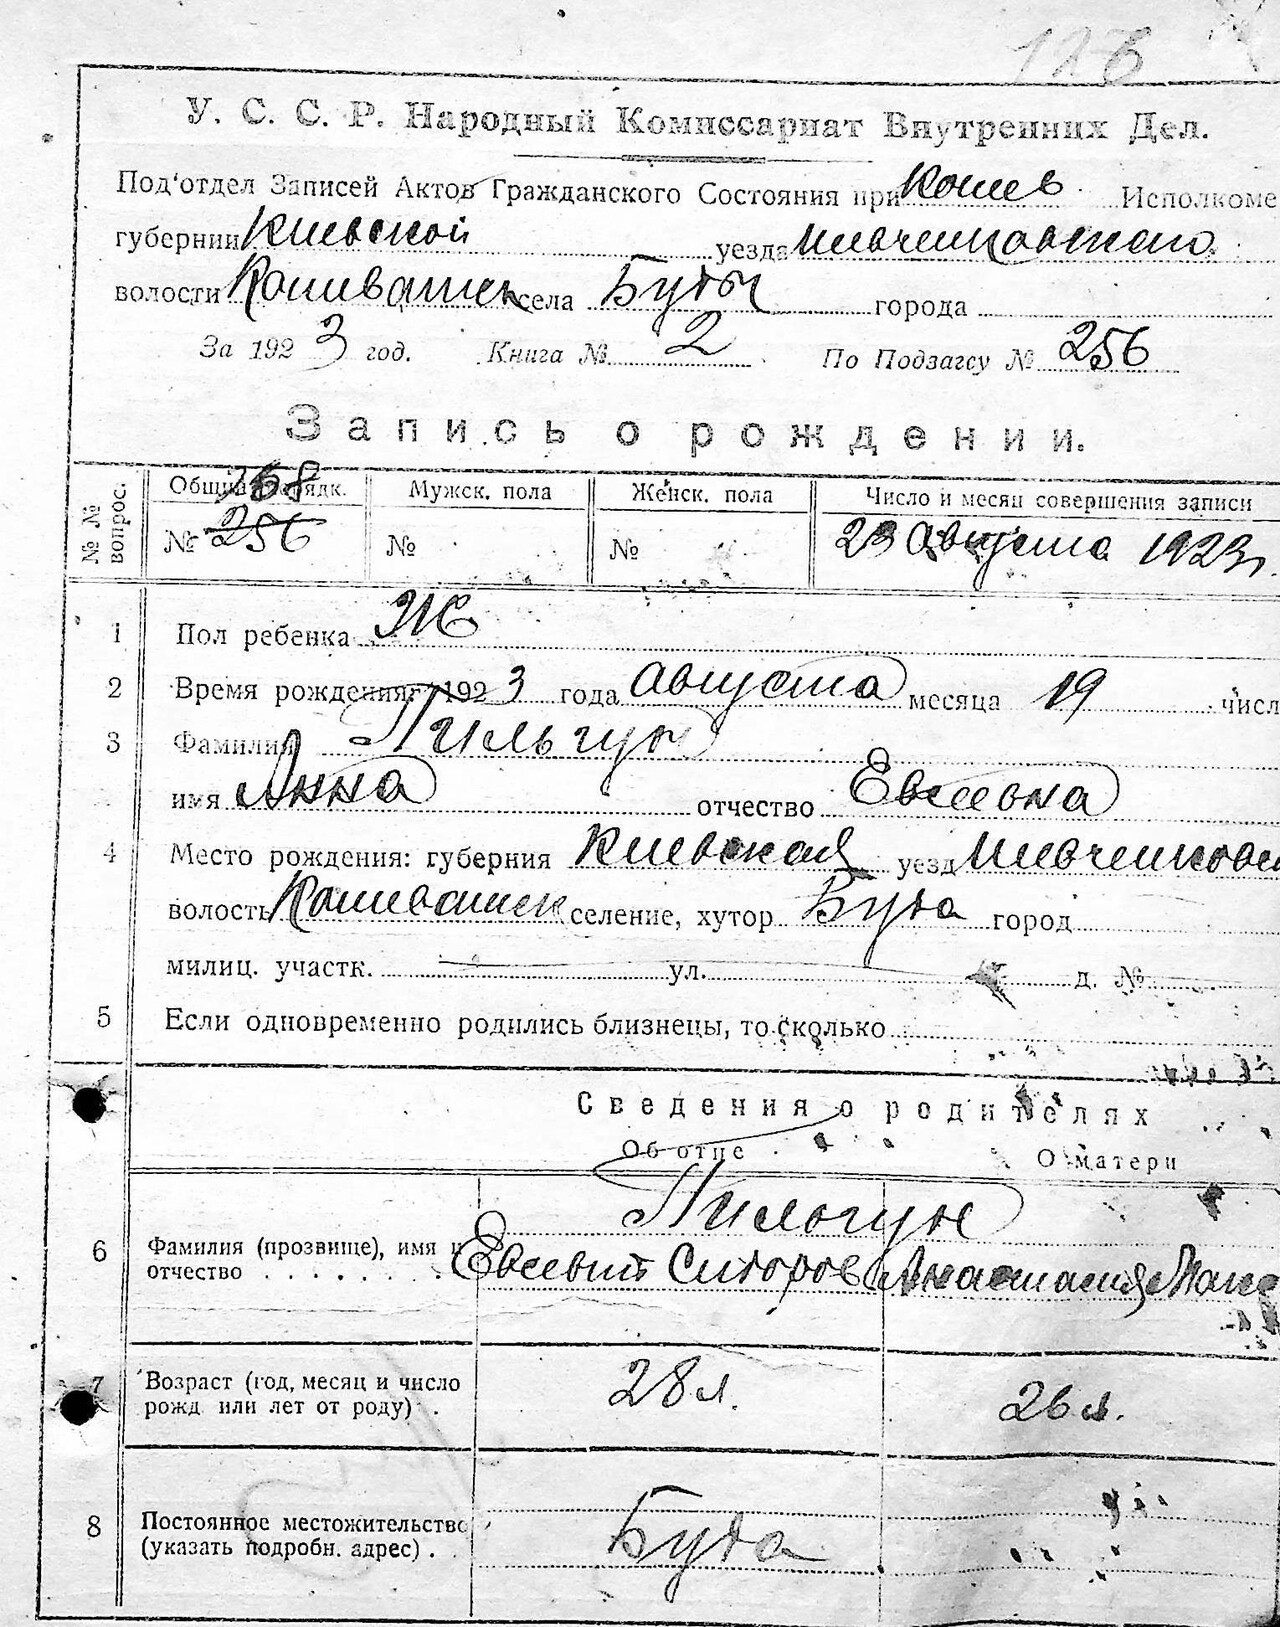 126
У. С. С. Р. Народный Комиссариат Внутренних Дел.
Под'отдел Записей Актов Гражданского Состояния при Кошев Исполкоме
губернии Киевской уезда Шевченковского
волости Кошеватск села Буты города
За 1923 год. Книга № 2 По Подзагсу № 256
Запись о рождении.
№ № вопрос. Общий порядк. Мужск. пола Женск. пола Число и месяц совершения записи
268
№ 256 № № 23 Августа 1923 г.
1 Пол ребенка Ж
2 Время рождения: 1923 года Августа месяца 19 числ
3 Фамилия Пильгун
имя Анна отчество Евсеевна
4 Место рождения: губерния Киевская уезд Шевченковск
волость Кошеватск селение, хутор Бута город
милиц. участк. ул. д. №
5 Если одновременно родились близнецы, то сколько
Сведения о родителях
Об отце О матери
Пильгун
6 Фамилия (прозвище), имя и
отчество Евсевий Сидоров Анастасия Макс
7 Возраст (год, месяц и число
рожд. или лет от роду) 28 л. 26 л.
8 Постоянное местожительство
(указать подробн. адрес) Бута